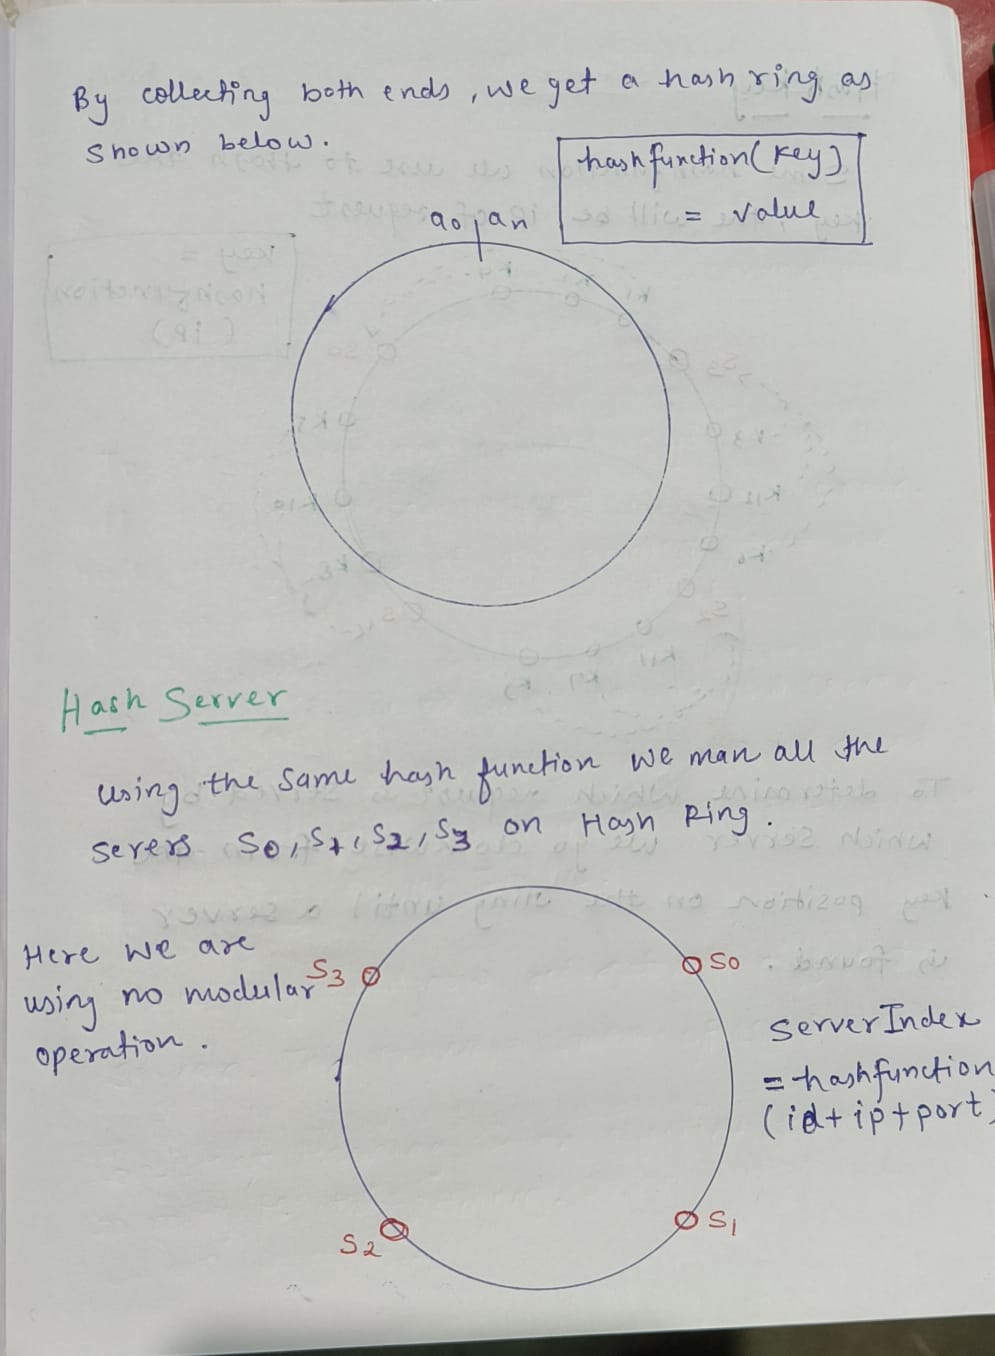 By collecting both ends, we get a hash ring as
shown below.
hashfunction(key)
= value
a0 an
Hash Server
using the same hash function we man all the
serers S0, S1, S2, S3 on Hash Ring.
Here we are
using no modular
operation.
S3
S0
serverIndex
= hashfunction
(id+ip+port)
S2
S1